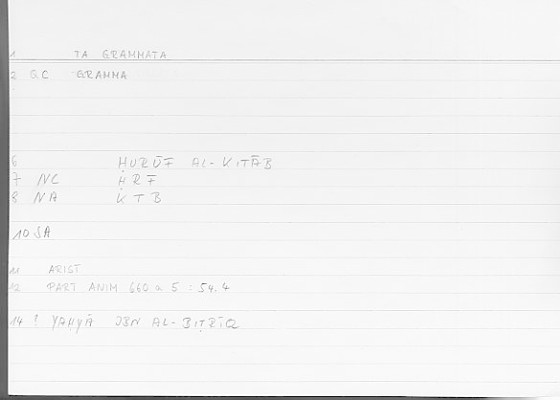 1 TA GRAMMATA
2 GC GRAMMA
6 ḤURŪF AL-KITĀB
7 NC ḤRF
8 NA KTB
10 SA
11 ARIST
12 PART ANIM 660 a 5 : 54.4
14 ? YAḤYĀ IBN AL-BIṬRĪQ